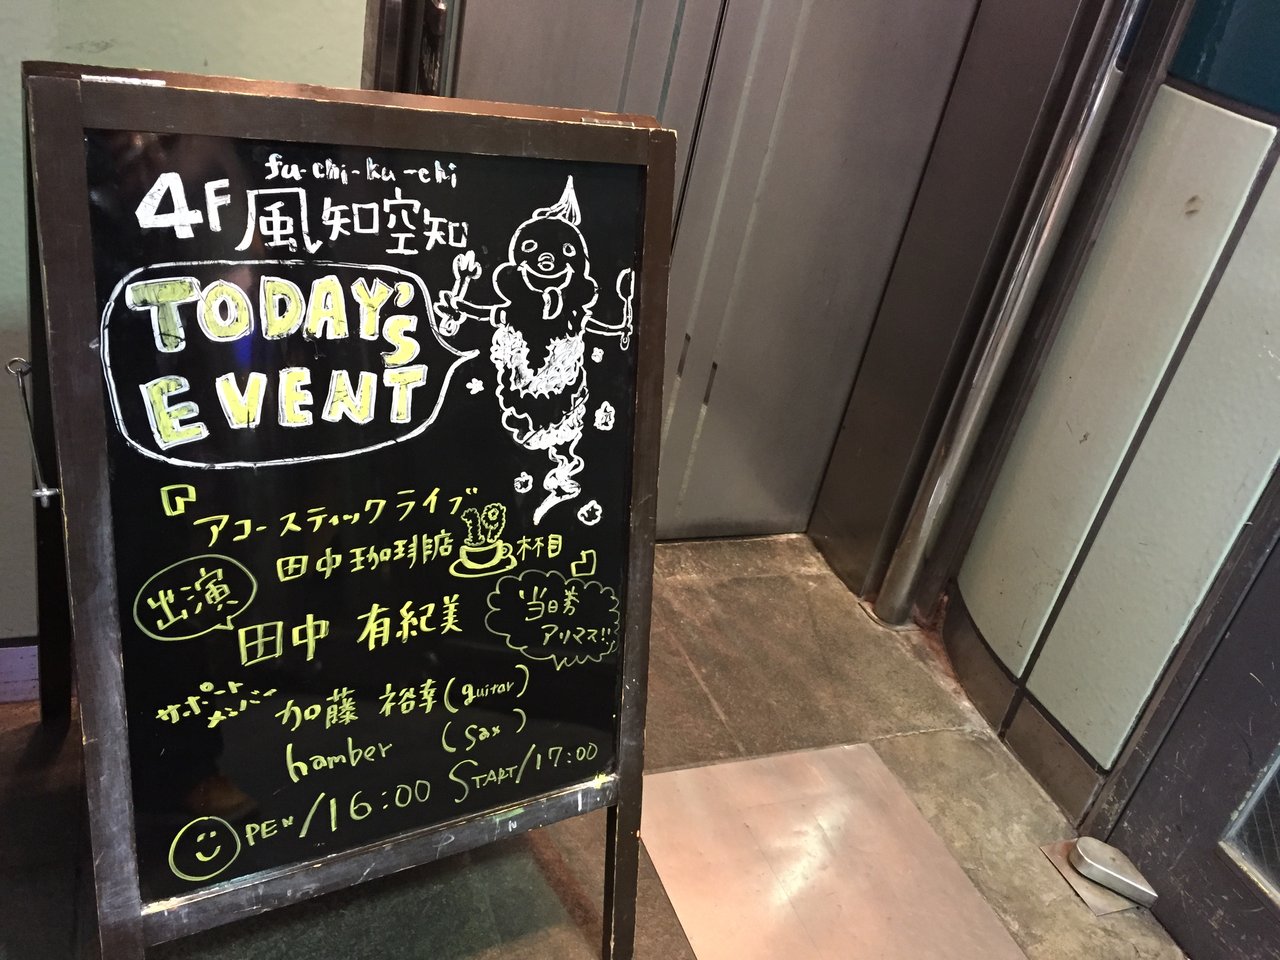 fu-chi-ku-chi
4F 風知空知
TODAY'S
EVENT
『アコースティックライブ
田中珈琲店 杯目』
出演
田中 有紀美
当日券
アリマス!!
サポート
メンバー
加藤 裕幸(guitar)
hamber (sax)
OPEN/16:00 START/17:00